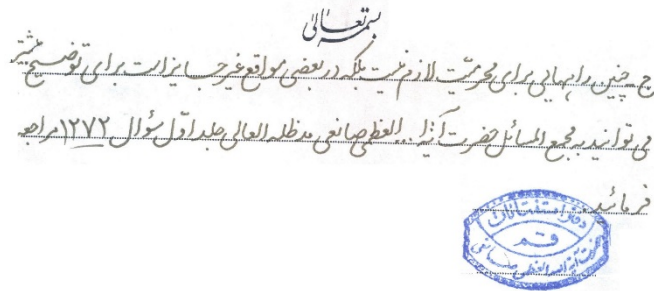 بسمه تعالی
ج ـ چنین راههایی برای محرمیّت لازم نیست بلکه در بعضی مواقع غیر جایز است برای توضیح بیشتر
می توانید به مجمع المسائل حضرت آیة ا... العظمی صانعی مدظله العالی جلد اوّل سؤال ۱۲۷۲ مراجعه
فرمائید.
دفتر استفتائات
قم
حضرت آیة الله العظمی صانعی